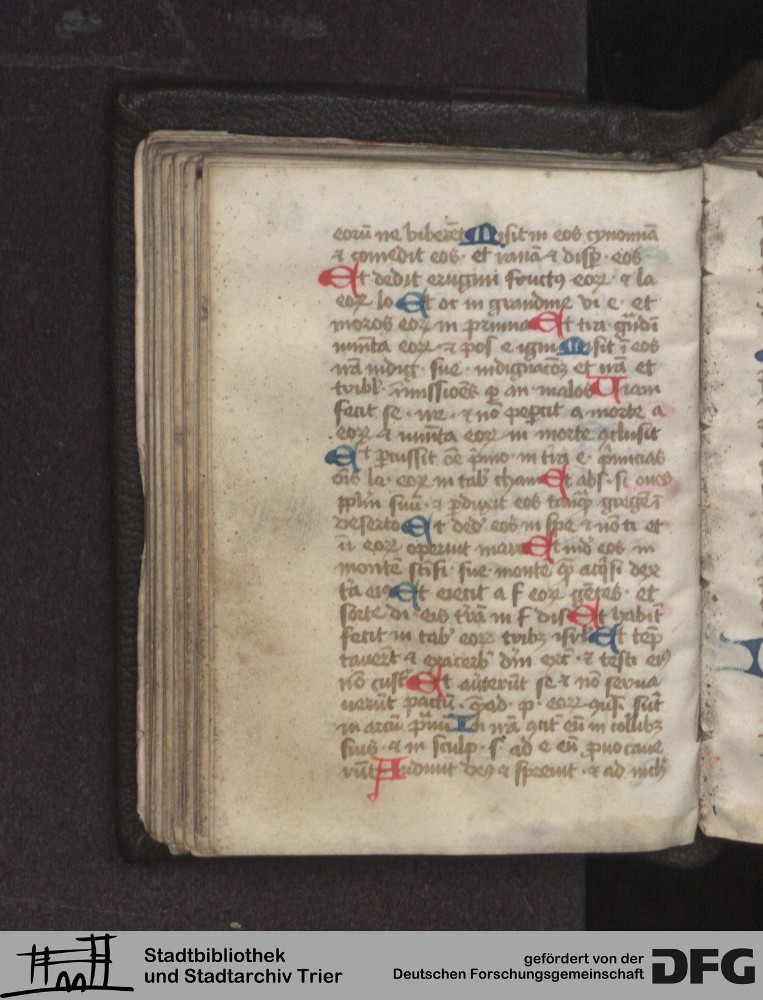 eorū ne biberēt Misit in eos cynomiā
⁊ comedit eos · et ranā ⁊ disp̄ · eos
Et dedit erugini fructꝰ eoꝝ · ⁊ la
eoꝝ lo Et oc in grandine vi e · et
moros eoꝝ in pruina Et tra · gͣdī
iumēta eoꝝ · ⁊ pos e igni Misit ī eos
irā indig · sue · indignacōꝫ et irā et
tribl̄ īmissiōēs ꝑ an malos Uiam
fecit se · ire · ⁊ nō peꝑcit a morte a
eoꝝ ⁊ iumēta eoꝝ in morte ꝯclusit
Et ꝑcussit ōē pͥmo · in tra e · pͥmicias
ōīs la · eoꝝ in tab̄ cham Et abs · sī oues
pplm̄ suū · ⁊ ꝑduxit eos tāqͣ gregē ī
deserto Et ded̄ eos in spe ⁊ nō ti et
eoꝝ operuit mare Et īdꝰ eos in
montē scīfi · sue · monte q̄ acq̄si dex
ta eiꝰ Et eiecit a f eoꝝ gētes · et
sorte di · eis trā in f dis Et habit̄
fecit in tab̄ eoꝝ tribꝫ isrl̄ Et tēp
tauer̄t ⁊ exacerb̄ dm̄ exc̄ · ⁊ testi eiꝰ
nō cust̄ Et auterūt se ⁊ nō serua
uerūt pactū · q̄ad · p · eoꝝ ꝯūsi sūt
in arcū pͣuū In irā ꝯcit̄ eū in collibꝫ
suis · ⁊ in sculp · s̄ ad e eū ꝓuocaue
rūt Audiuit deꝰ ⁊ spreuit · ⁊ ad nich̄
Stadtbibliothek
und Stadtarchiv Trier
gefördert von der
Deutschen Forschungsgemeinschaft
DFG